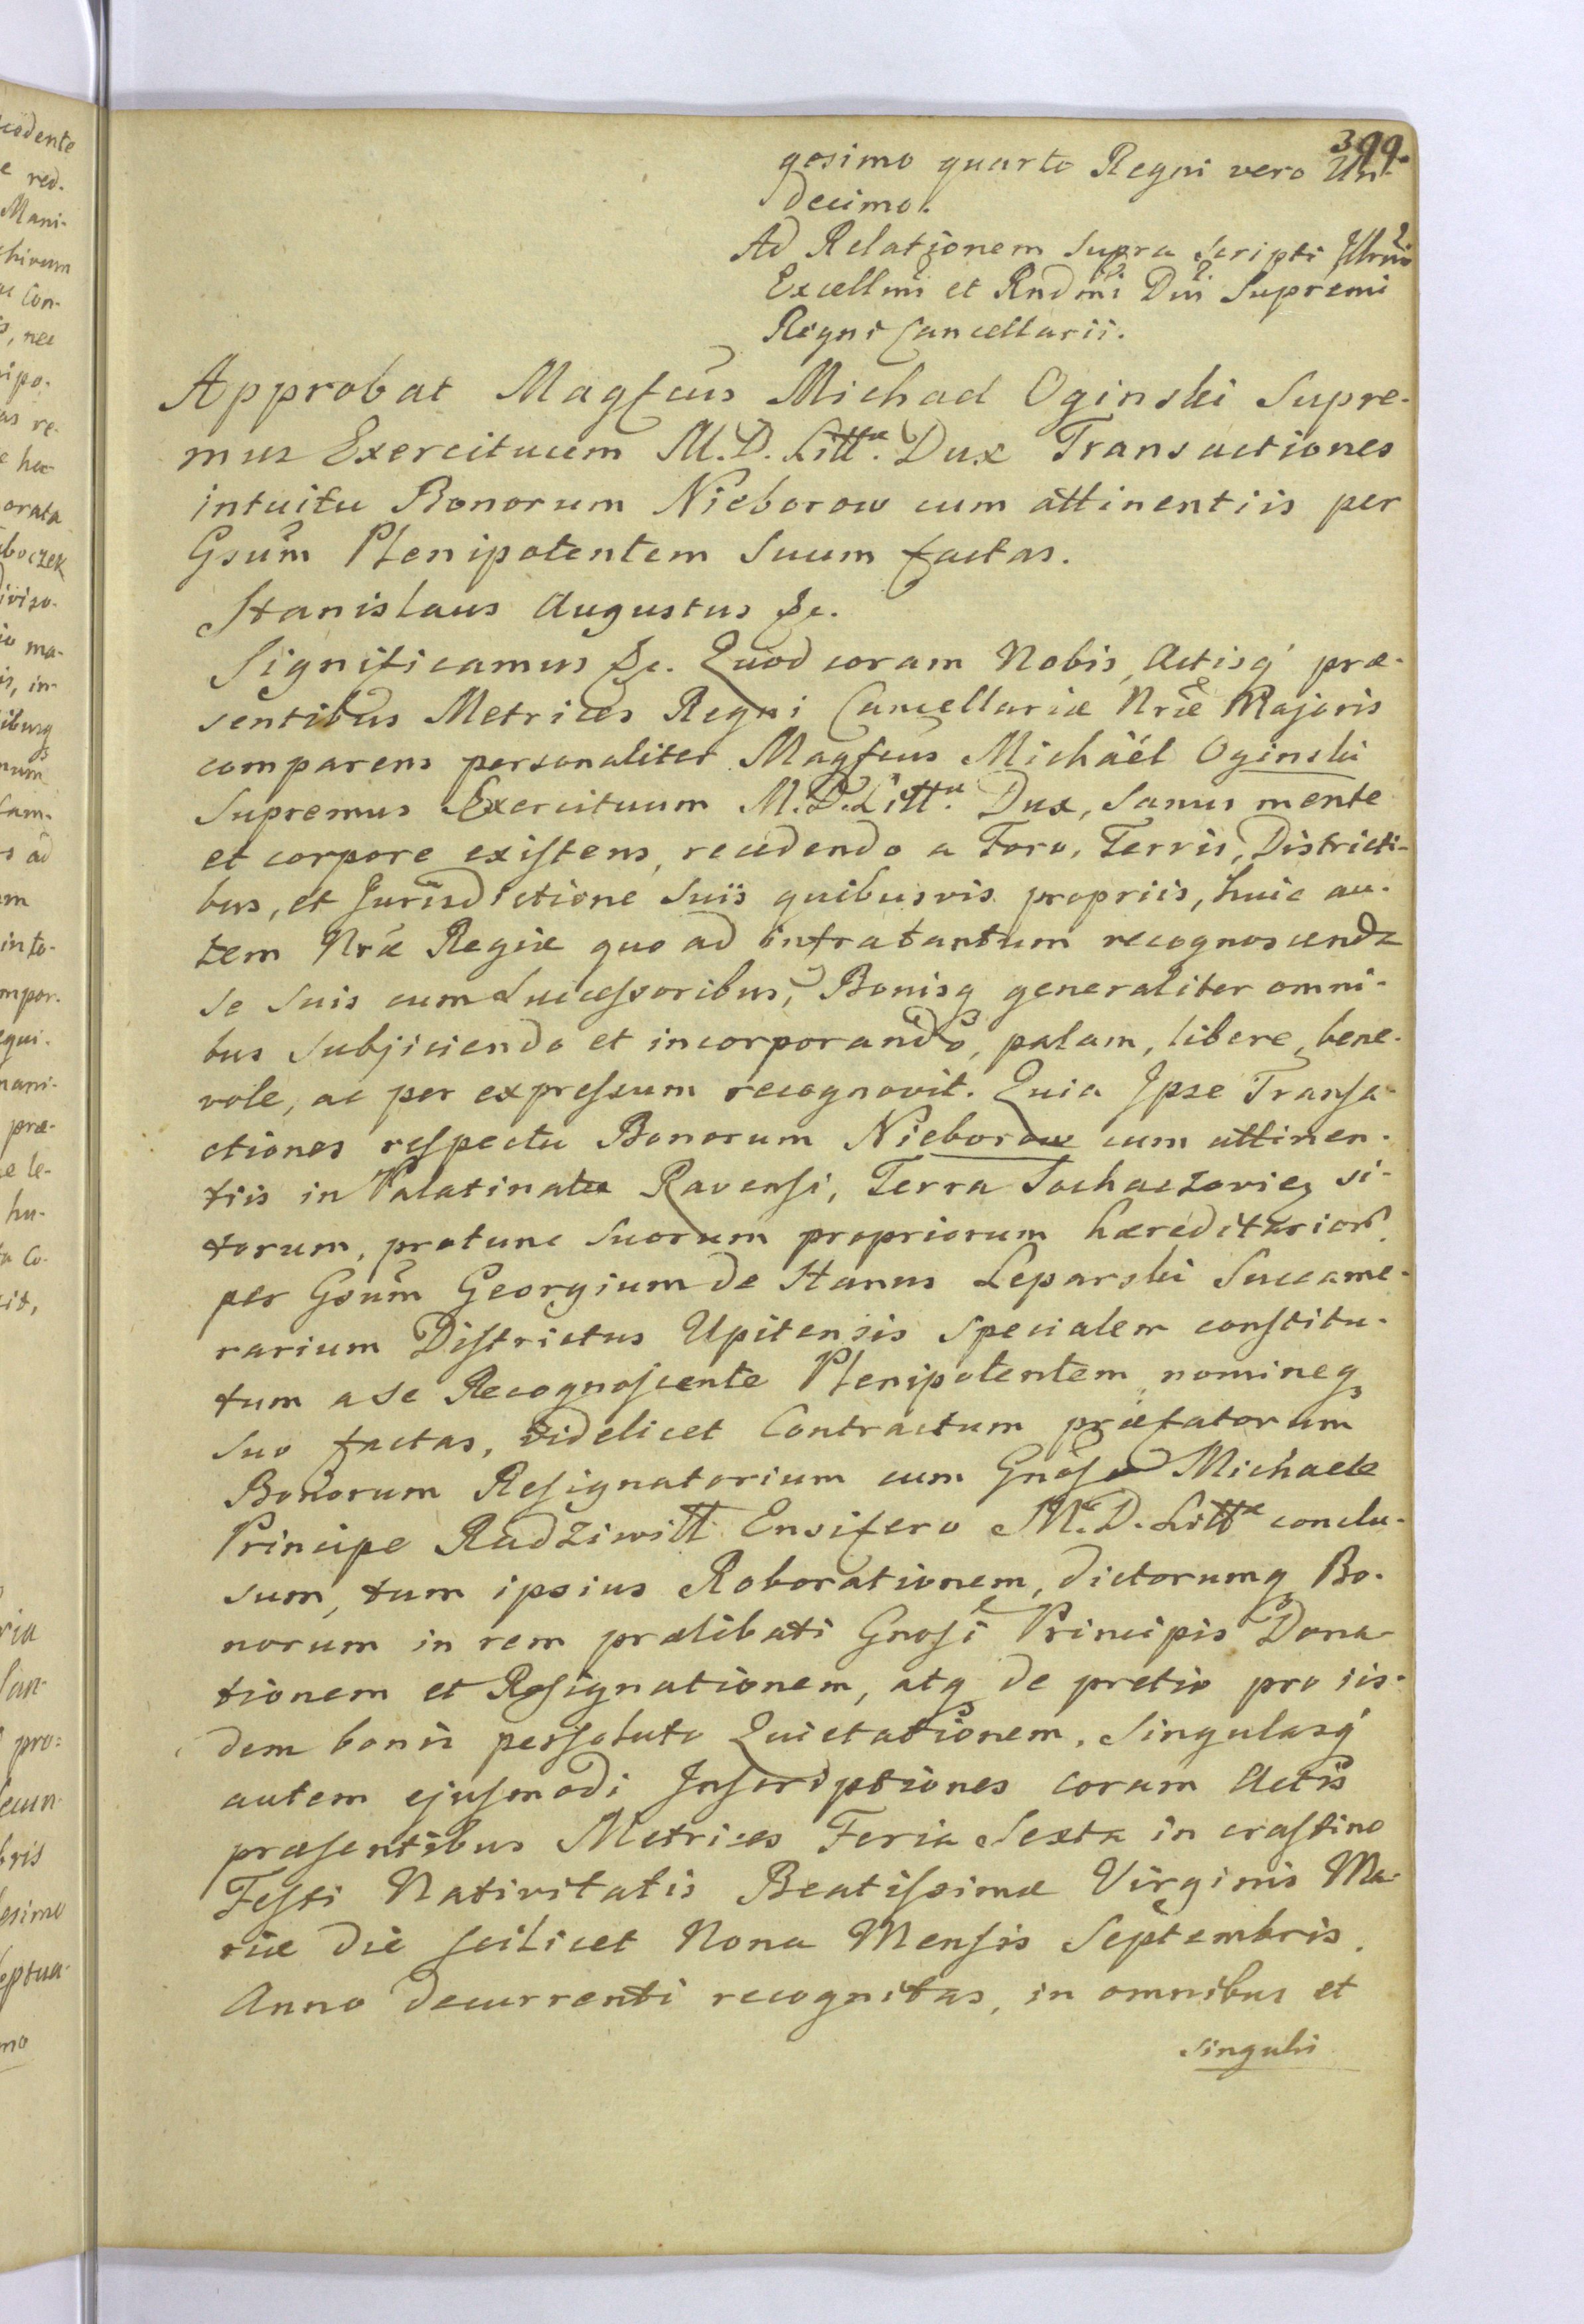 399.
gesimo quarto Regni vero Un-
decimo.
Ad Relationem supra scripti Illrmi
Excellmi et Rndmi Dni Supremi
Regni Cancellarii.
Approbat Magfcus Michael Oginski Supre-
mus Exercituum M.D. Littæ. Dux Transactiones
intuitu Bonorum Nieborow cum attinentiis per
Gsum Plenipotentem Suum factas.
Stanislaus Augustus &c.
Significamus &c. Quod coram Nobis, Actisq præ-
sentibus Metrices Regni Cancellariæ Nræ Majoris
comparens personaliter Magfcus Michäel Oginski
Supremus Exercituum M.D. Litt.æ Dux, Sanus mente
et corpore existens, recedendo a Foro, Terris, Districti-
bus, et Jurisdictione suis quibusvis propriis, huic au-
tem Nræ Regiæ quo ad infra tantum recognoscenda
se suis cum successoribus, Bonisq generaliter omni-
bus subjiciendo et incorporando, palam, libere, bene-
vole, ac per expressum recognovit. Quia Ipse Transa-
ctiones respectu Bonorum Nieborow cum attinen-
tiis in Palatinatu Ravensi, Terra Sochaczovieñ si-
torum, protunc suorum propriorum hæreditarior̃
per Gsum Georgium de Hanus Leparski Succame-
rarium Districtus Upitensis specialem constitu-
tum a se Recognoscente Plenipotentem nomineq
suo factas, videlicet Contractum præfatorum
Bonorum Resignatorium cum Gnoso Michaele
Principe Radziwitt Ensifero M.D. Littæ conclu-
sum, tum ipsius Roborationem, dictorumq Bo-
norum in rem prælibati Gnosi Principis Dona-
tionem et Resignationem, atq de pretio pro iis-
dem bonis persoluto Quietationem, Singulasq
autem ejusmodi Inscriptiones coram Actis
præsentibus Metrices Feria Sexta in crastino
Festi Nativitatis Beatissimæ Virginis Ma-
riæ die scilicet Nona Mensis Septembris,
Anno decurrenti recognitas, in omnibus et
singulis